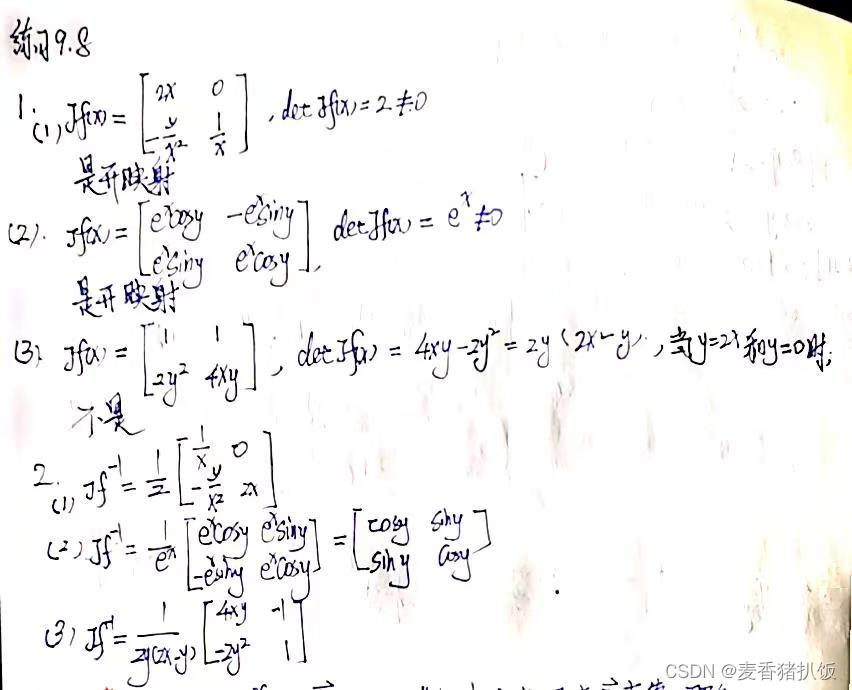 练习9.8
1.
(1) Jf(x) = [2x 0; -y/x² 1/x], det Jf(x) = 2 ≠ 0
是开映射
(2). Jf(x) = [eˣcosy -eˣsiny; eˣsiny eˣcosy], det Jf(x) = eˣ ≠ 0
是开映射
(3) Jf(x) = [1 1; 2y² 4xy], det Jf(x) = 4xy-2y² = 2y(2x-y), 当y=2x和y=0时,
不是
2.
(1) Jf⁻¹ = 1/2 [1/x 0; -y/x² 2x]
(2) Jf⁻¹ = 1/eˣ [eˣcosy eˣsiny; -eˣsiny eˣcosy] = [cosy siny; -siny cosy]
(3) Jf⁻¹ = 1/(2y(2x-y)) [4xy -1; -2y² 1]
CSDN @麦香猪扒饭